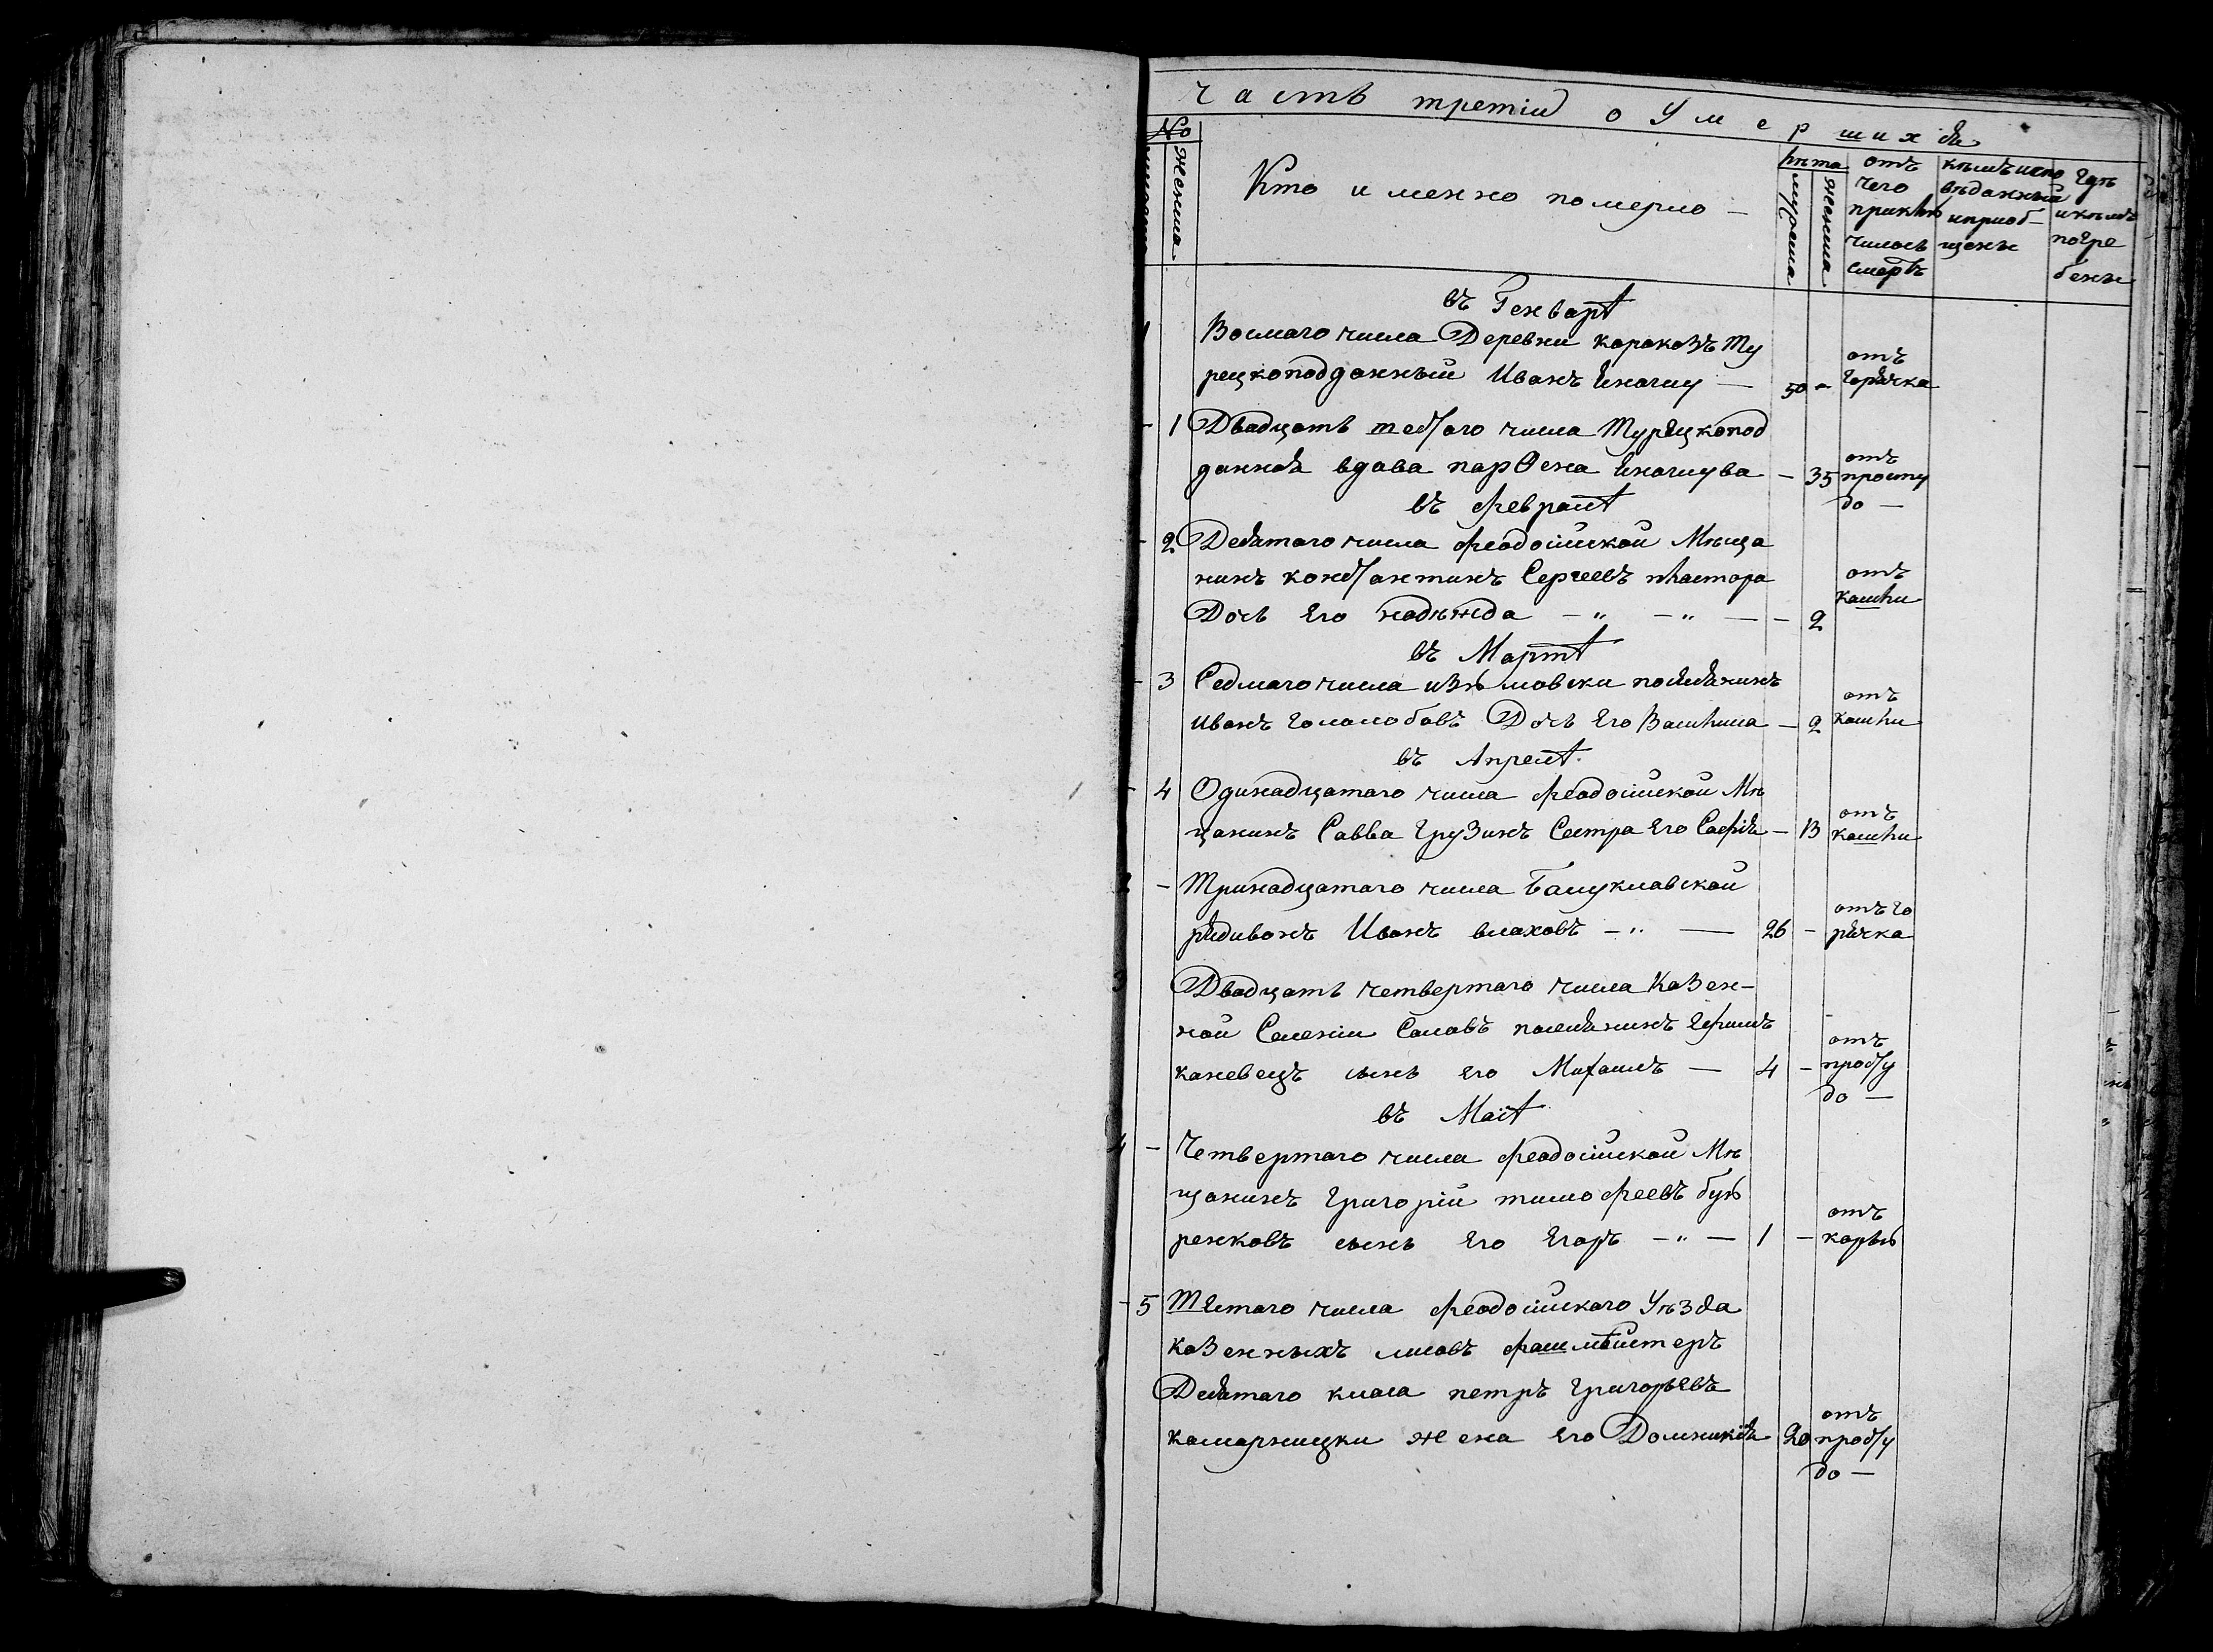 Часть третiя о Умершихъ
№
Женска
Кто именно померло —
лѣта
мужеска
женска
отъ чего приклю чилось смерть
кѣмъ испо вѣданный и приоб— щены
гдѣ и кѣмъ погре бены
въ Генварѣ
1
Восмаго числа Деревни каракозъ Ту
рецкоподданный Иванъ —
50 —
отъ горячка
— 1
Двадцать шестаго числа Турецкопод
данная вдова парѳена
— 35
отъ просту до —
въ февралѣ
— 2
Девятаго числа феодосiйской Мѣща
нинъ константинъ Сергеевъ
Дочь Его надѣжда — „ — „ —
— 2
отъ кашли
въ Мартѣ
— 3
Седмаго числа поселянинъ
Иванъ голомобовъ Дочь Его Василиса
— 2
отъ кашли
въ Апрелѣ
— 4
Одинадцатаго числа феодосiйской Мѣ
щанинъ Савва Грузинъ Сестра Его Софiя
— 13
отъ кашли
2 —
Тринадцатаго числа Балуклавской
рядивонъ Иванъ влаховъ — „ —
26 —
отъ го рячка
3
Двадцать четвертаго числа Казен—
ной Селенiи Саловъ поселянинъ Ефимъ
каневецъ сынъ его Михаилъ —
4 —
отъ просту до —
въ Маiѣ
4 —
Четвертаго числа феодосiйской Мѣ
щанинъ Григорiй тимофеевъ
ренковъ сынъ Его Егоръ — „ —
1 —
отъ корьѣ
— 5
Шестаго числа феодосiйскаго Уѣзда
Казенныхъ лисовъ
Девятаго класа петръ Григорьевъ
камарницки жена Его Домникiя
20
отъ просту до —